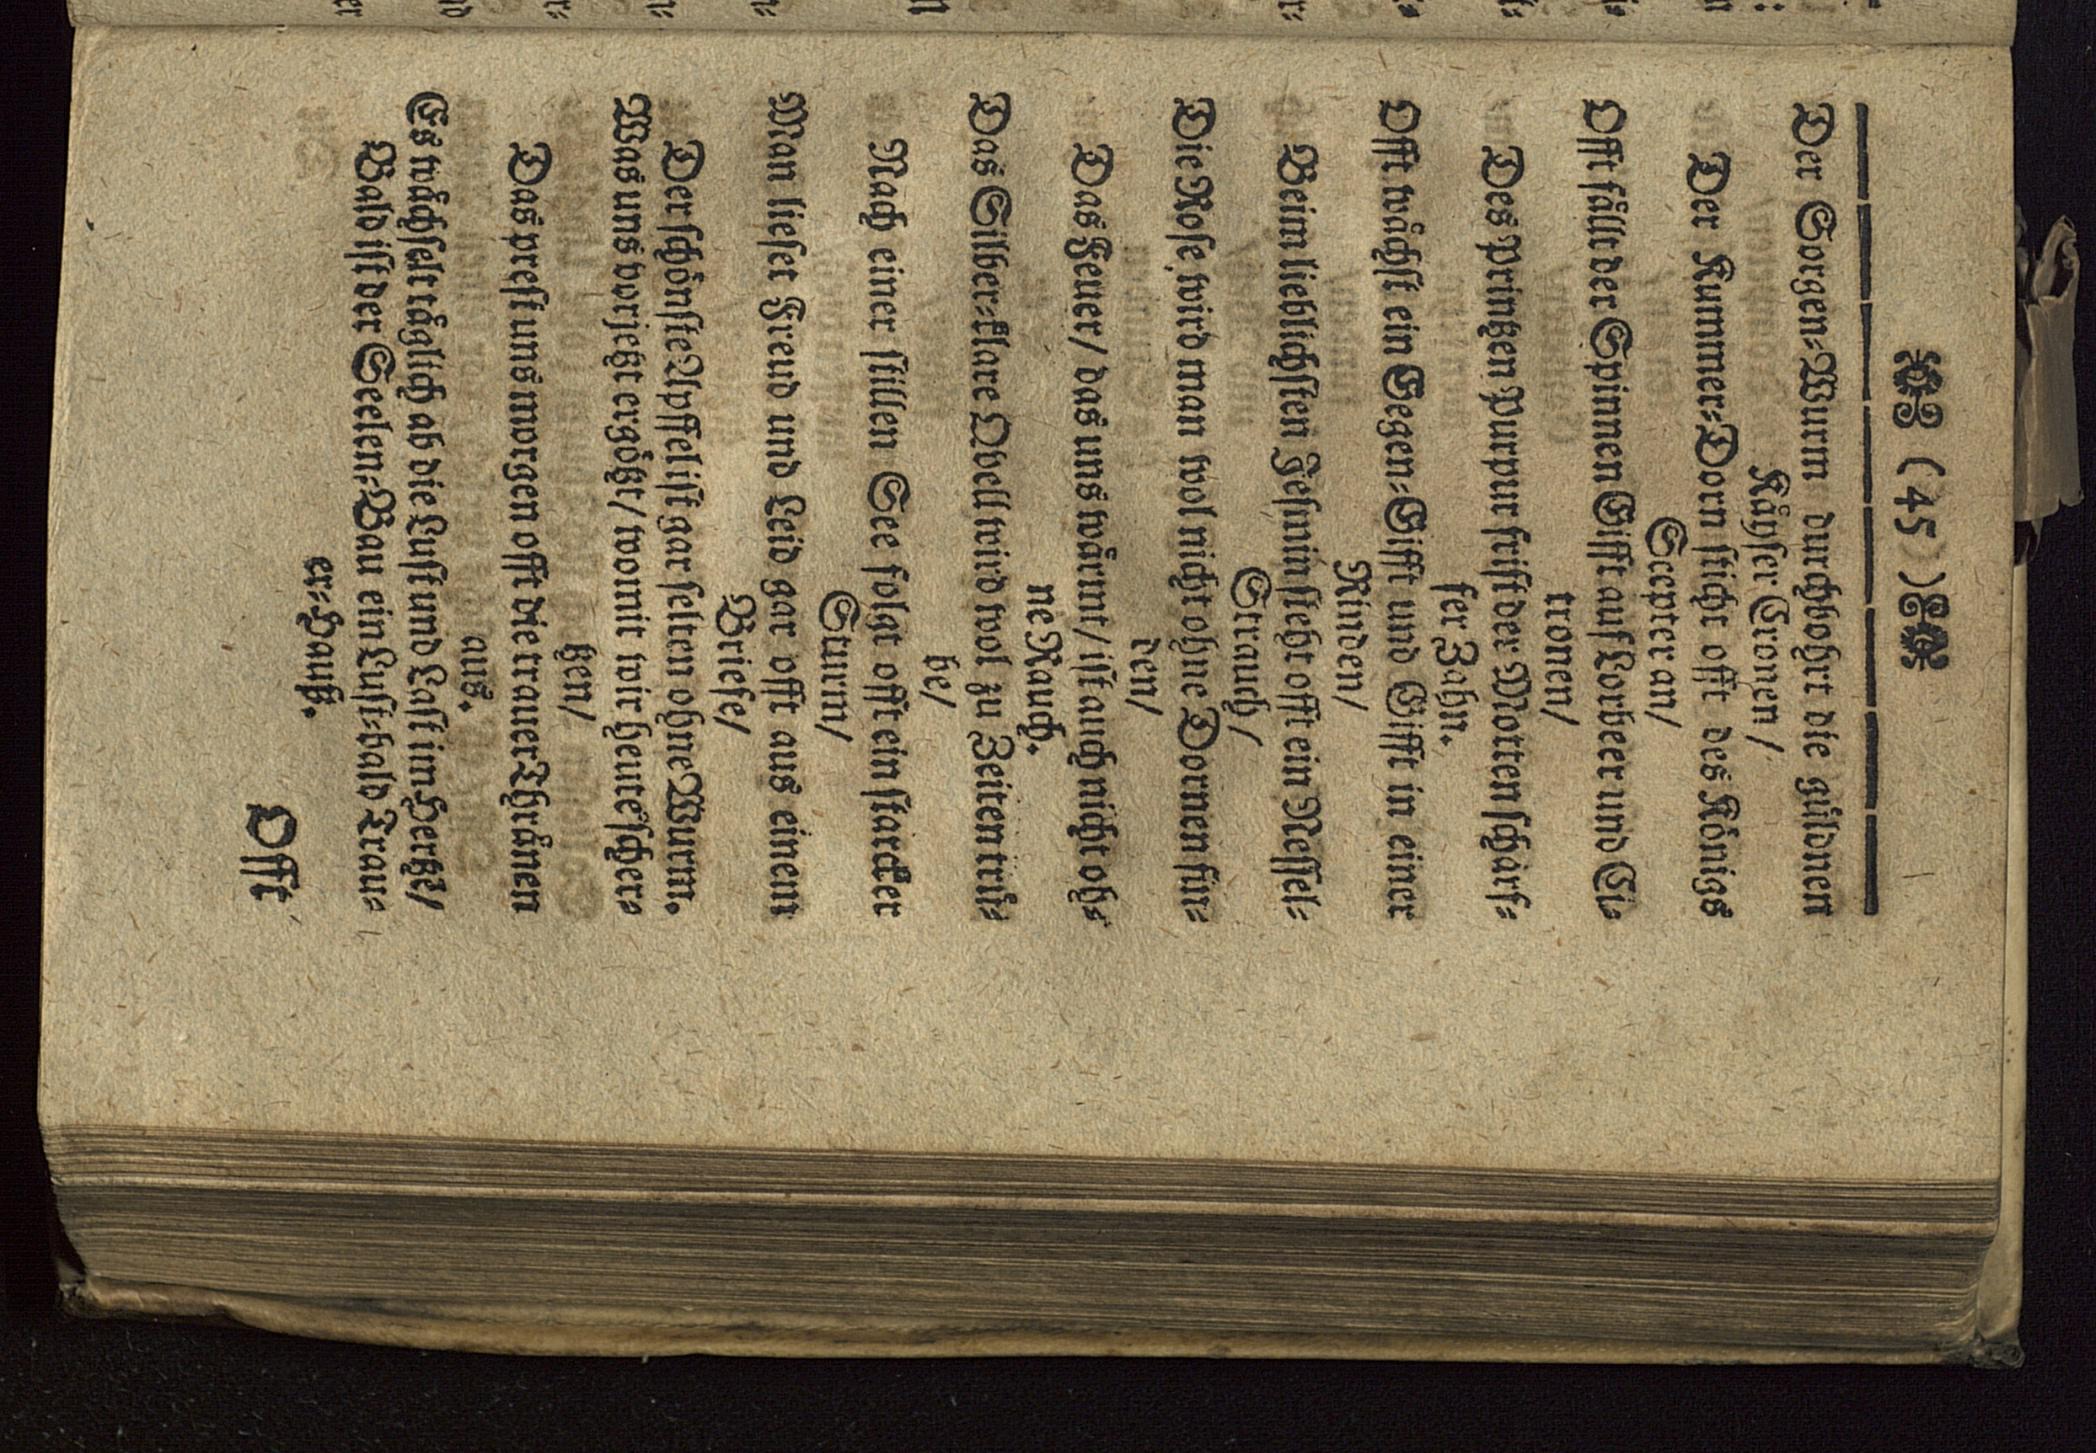 (45)
Der Sorgen⸗Wurm durchbohrt die güldnen
Käyser Cronen /
Der Kummer⸗Dorn sticht offt des Königs
Scepter an/
Offt fällt der Spinnen Gifft auf Lorbeer und Ci⸗
tronen/
Des Pringen Purpur frist der Motten schärf⸗
fer Zahn.
Offt wächst ein Gegen⸗Gifft und Gifft in einer
Rinden/
Beim lieblichsten Jesmin steht offt ein Nessel⸗
Strauch/
Die Rose wird man wol nicht ohne Dornen fin⸗
den/
Das Feuer/ das uns wärmt/ ist auch nicht oh⸗
ne Rauch.
Das Silber⸗klare Qvell wird wol zu Zeiten trü⸗
be/
Nach einer stillen See folgt offt ein starcker
Sturm/
Man lieset Freud und Leid gar offt aus einem
Briefe/
Der schönste Apffel ist gar selten ohne Wurm.
Was uns vorjetzt ergötzt/ womit wir heute scher⸗
tzen/
Das prest uns morgen offt die trauer Thränen
aus.
Es wächselt täglich ab die Lust und Last im Hertze/
Bald ist der Seelen⸗Bau ein Lust⸗bald Trau⸗
er⸗Hauß.
Offt